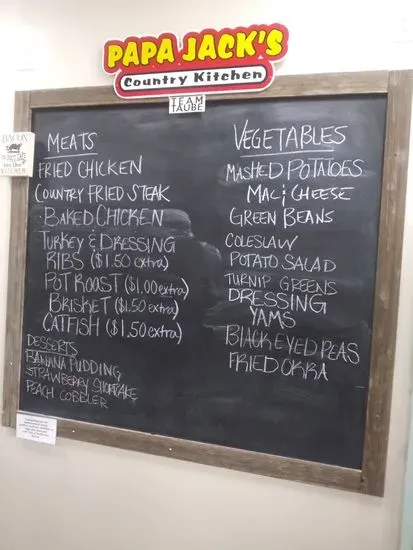 PAPA JACK'S
Country Kitchen
TEAM
TAUBE
BACON
KITCHEN
MEATS
FRIED CHICKEN
COUNTRY FRIED STEAK
BAKED CHICKEN
TURKEY & DRESSING
RIBS ($1.50 extra)
POT ROAST ($1.00 extra)
BRISKET ($1.50 extra)
CATFISH ($1.50 extra)
DESSERTS
BANANA PUDDING
STRAWBERRY SHORTCAKE
PEACH COBBLER
VEGETABLES
MASHED POTATOES
MAC & CHEESE
GREEN BEANS
COLESLAW
POTATO SALAD
TURNIP GREENS
DRESSING
YAMS
BLACK EYED PEAS
FRIED OKRA